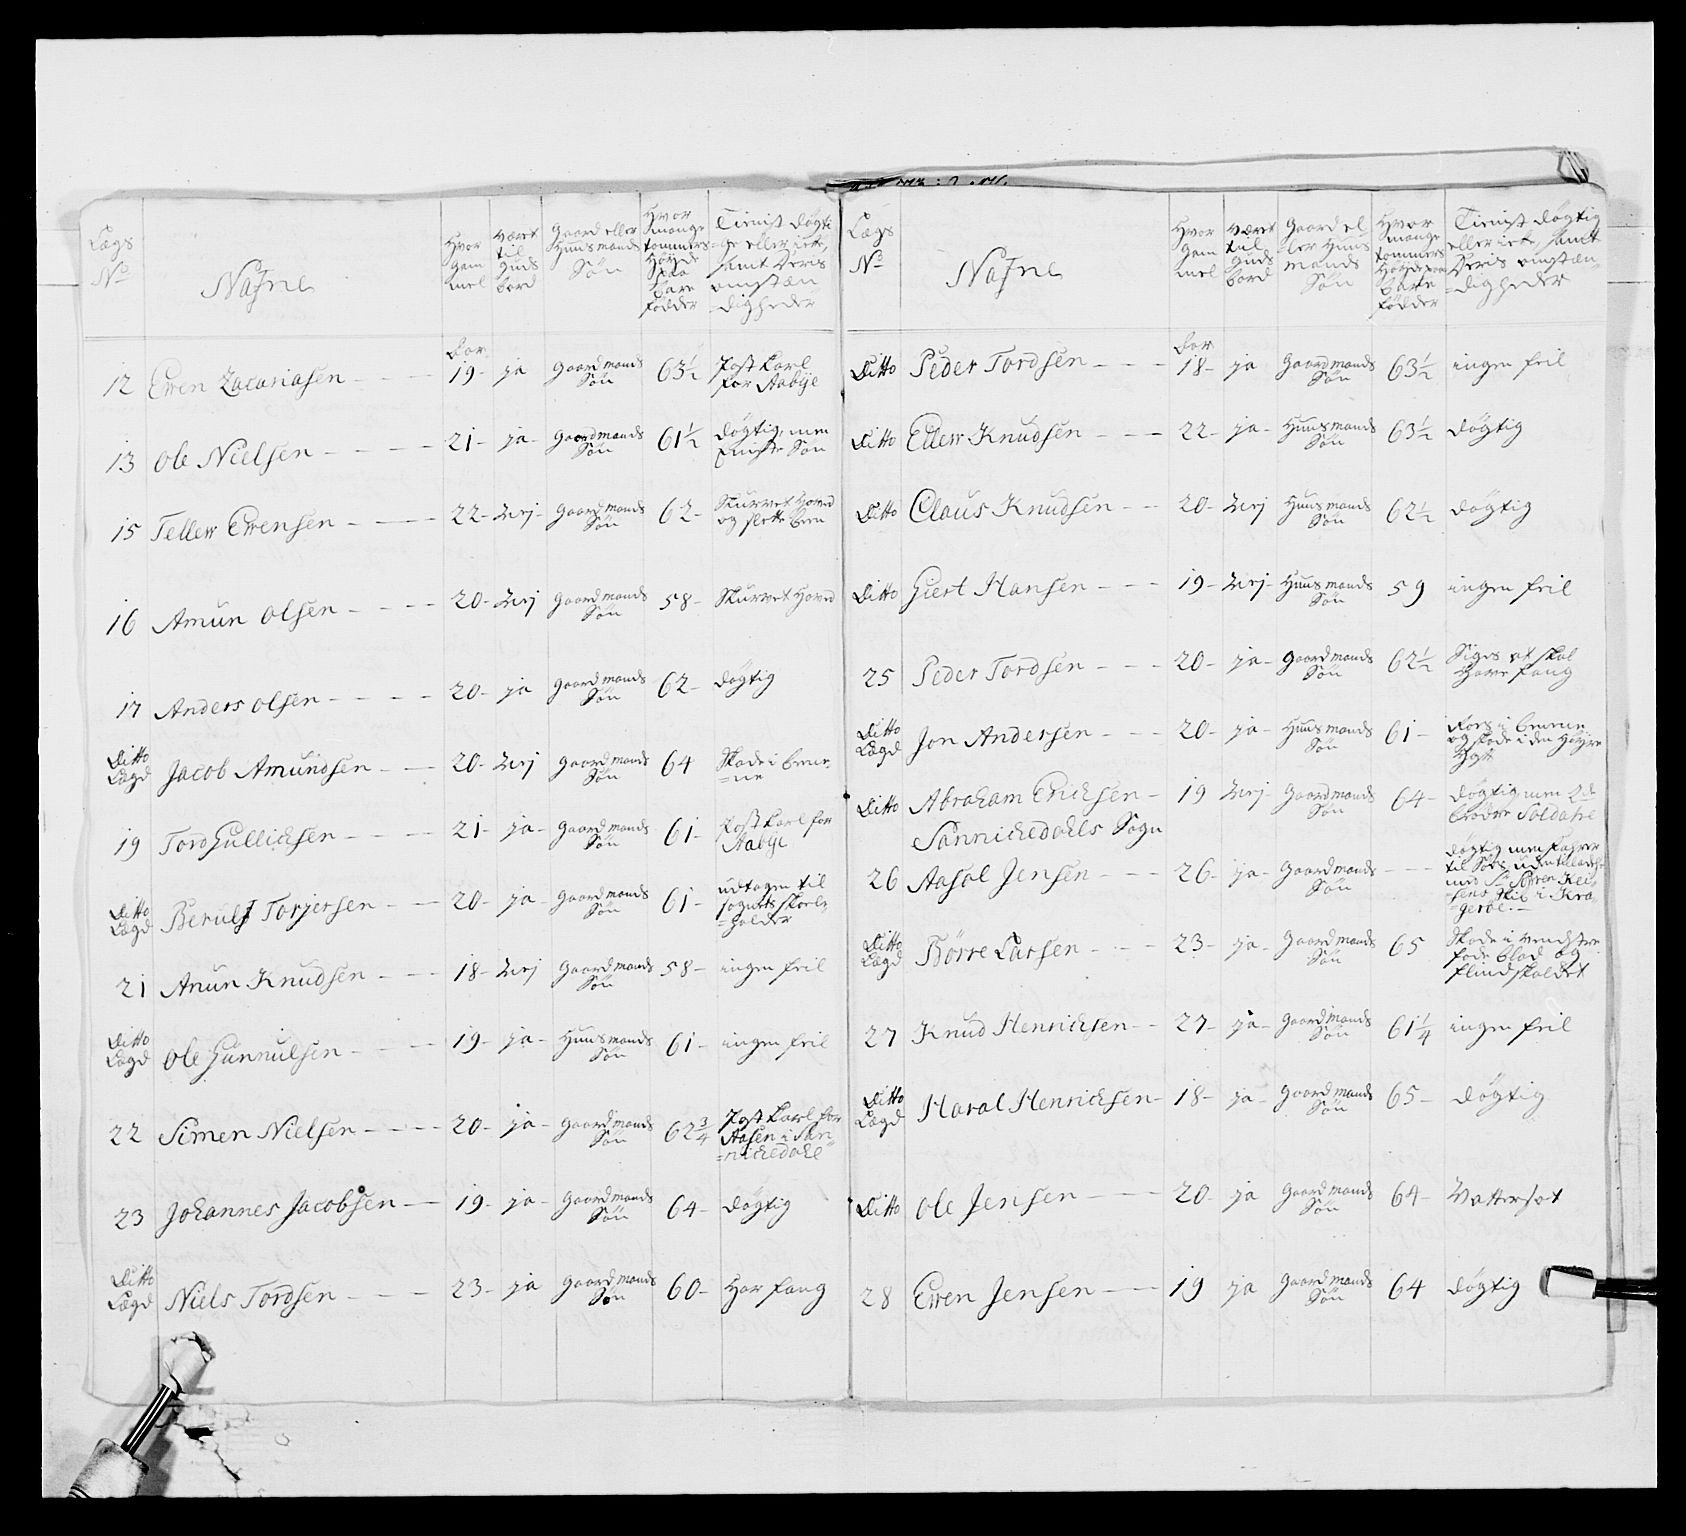 Lægs
No
Nafne
Hvor
Gam
mel
været
til
Guds
bord
Gaard eller
Huusmands
Søn
Hvor
mange
tommers
Høyde
paa
bare
fødder
Tienist døgti
=ge eller icke,
samt Deris
omstæn
=digheder
12 Ewen Zacariasen - - - - aar 19- ja Gaardmands Søn 63½ Postkarl
for Aabye
13 Ole Nielsen - - - - 21- ja- Gaardmands Søn 61½ døgtig, men
Søn
15 Tellew Ewensen - - - 22- Nej- Gaardmands Søn 62- Skurvet Hoved
og slette been
16 Amun Olsen - - - - 20- Nej Gaardmands Søn 58- Skurvet Hoved
17 Anders Olsen - - - - 20- ja Gaardmands Søn 62- døgtig
Ditto
Lægd Jacob Amundsen - - 20- Nej Gaardmands Søn 64 Skade i bene-
=ne
19 Tord Gullichsen - - - 21- ja- Gaardmands Søn 61- Postkarl for
Aabye
Ditto
Lægd Berulf Torjersen - - - 20- ja- Gaardmands Søn 61- udtagen til
sognets skole-
=holder
21 Anun Knudsen - - - 18- Nej Gaardmands Søn 58- ingen feil
Ditto
Lægd Ole Gunnulsen - - - - 19- ja- Huusmands Søn 61- ingen feil
22 Simen Nielsen - - - - 20- ja- Gaardmands Søn 62¾ Postkarl for
Aasen i San
=nickedahl
23 Johannes Jacobsen - - 19- ja- Gaardmands Søn 64- døgtig
Ditto
Lægd Niels Tordsen - - - 23- ja Gaardmands Søn 60- Har fang
Lægs
No
Nafne
Hvor
Gam
mel
været
til
Guds
bord
Gaard el
=ler Huus
mands
Søn
Hvor
mange
tommers
Høyde paa
bare
fødder
Tienist døgtig
eller icke, samt
Deris omstæn-
=digheder
Ditto Peder Tordsen - - - aar 18- ja Gaardmands Søn 63½ ingen feil
Ditto Ellew Knudsen - - - 22- ja- Huusmands Søn 63½ døgtig
Ditto Claus Knudsen - - 20- Nej Huusmands Søn 62½ døgtig
Ditto Giert Hansen - - - 19- Nej- Huusmands Søn 59 ingen feil
25 Peder Tordsen - - - 20- ja- Gaardmands Søn 62½ Siges at skal
Have fang
Ditto
Lægd Jon Andersen - - - 20- ja- Huusmands Søn 61- i benene
og skade i den Høyre
Ditto Abraham Ericksen - 19 Nej- Gaardmands Søn 64- døgtig men 2de
brødre Soldater
Sannickedahls Sogn
26 Aasol Jensen - - - 26- ja- Gaardmands Søn - - - døgtig men farer
til Søes uden tilladelse
med Sr Søren
skib i Kra-
=gerøe. -
Ditto
Lægd Börre Larsen - - - 23- ja- Gaardmands Søn 65 Skade i Venstre
fode blad og
flindskaldet
27 Knud Henrichsen - - 27- ja- Gaardmands Søn 61¼ ingen feil
Ditto
Lægd Haral Henrichsen - 18- ja- Gaardmands Søn 65- døgtig
Ditto Ole Jensen - - - 20- ja Gaardmands Søn 64- Vattersot
28 Ewen Jensen - - - 19 ja Gaardmands Søn 64 døgtig